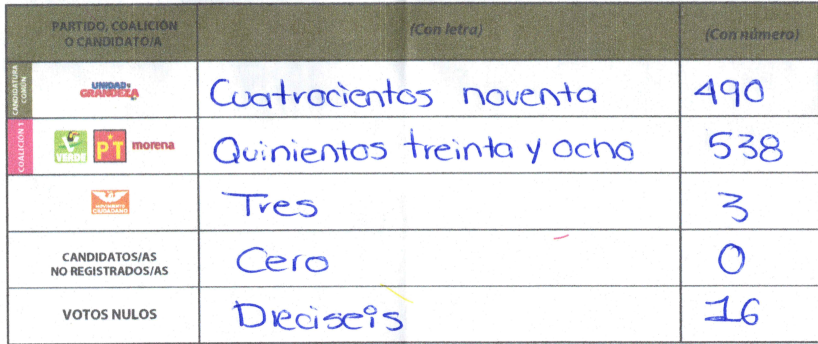 PARTIDO, COALICIÓN O CANDIDATO/A (Con letra) (Con número)
CANDIDATURA COMÚN UNIDAD Y GRANDEZA Cuatrocientos noventa 490
COALICIÓN 1 VERDE PT morena Quinientos treinta y ocho 538
MOVIMIENTO CIUDADANO Tres 3
CANDIDATOS/AS NO REGISTRADOS/AS Cero 0
VOTOS NULOS Dieciseis 16